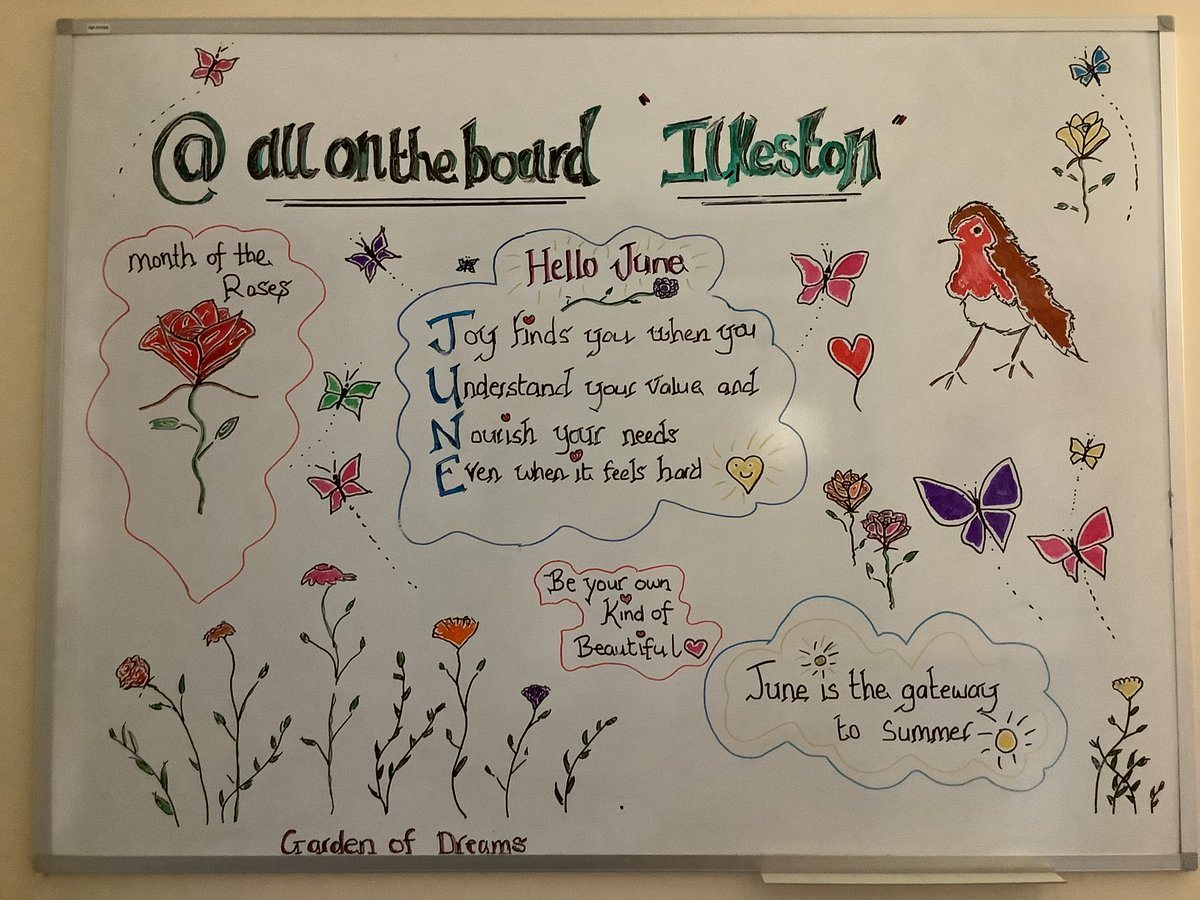 @allontheboard "Ilkeston"
month of the
Roses
Hello June
Joy finds you when you
Understand your value and
Nourish your needs
Even when it feels hard
Be your own
Kind of
Beautiful
June is the gateway
to summer
Garden of Dreams